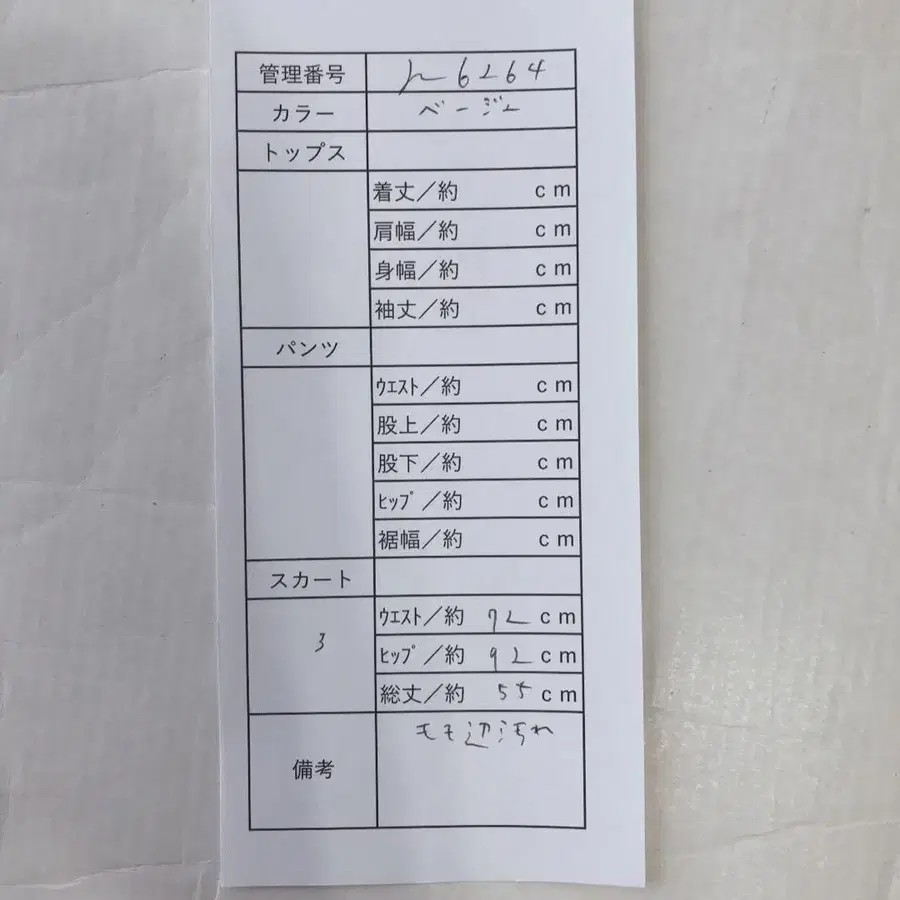 管理番号 h6264
カラー ベージュ
トップス
着丈／約 cm
肩幅／約 cm
身幅／約 cm
袖丈／約 cm
パンツ
ウエスト／約 cm
股上／約 cm
股下／約 cm
ヒップ／約 cm
裾幅／約 cm
スカート
3
ウエスト／約 72cm
ヒップ／約 92cm
総丈／約 55cm
備考 もも辺汚れ